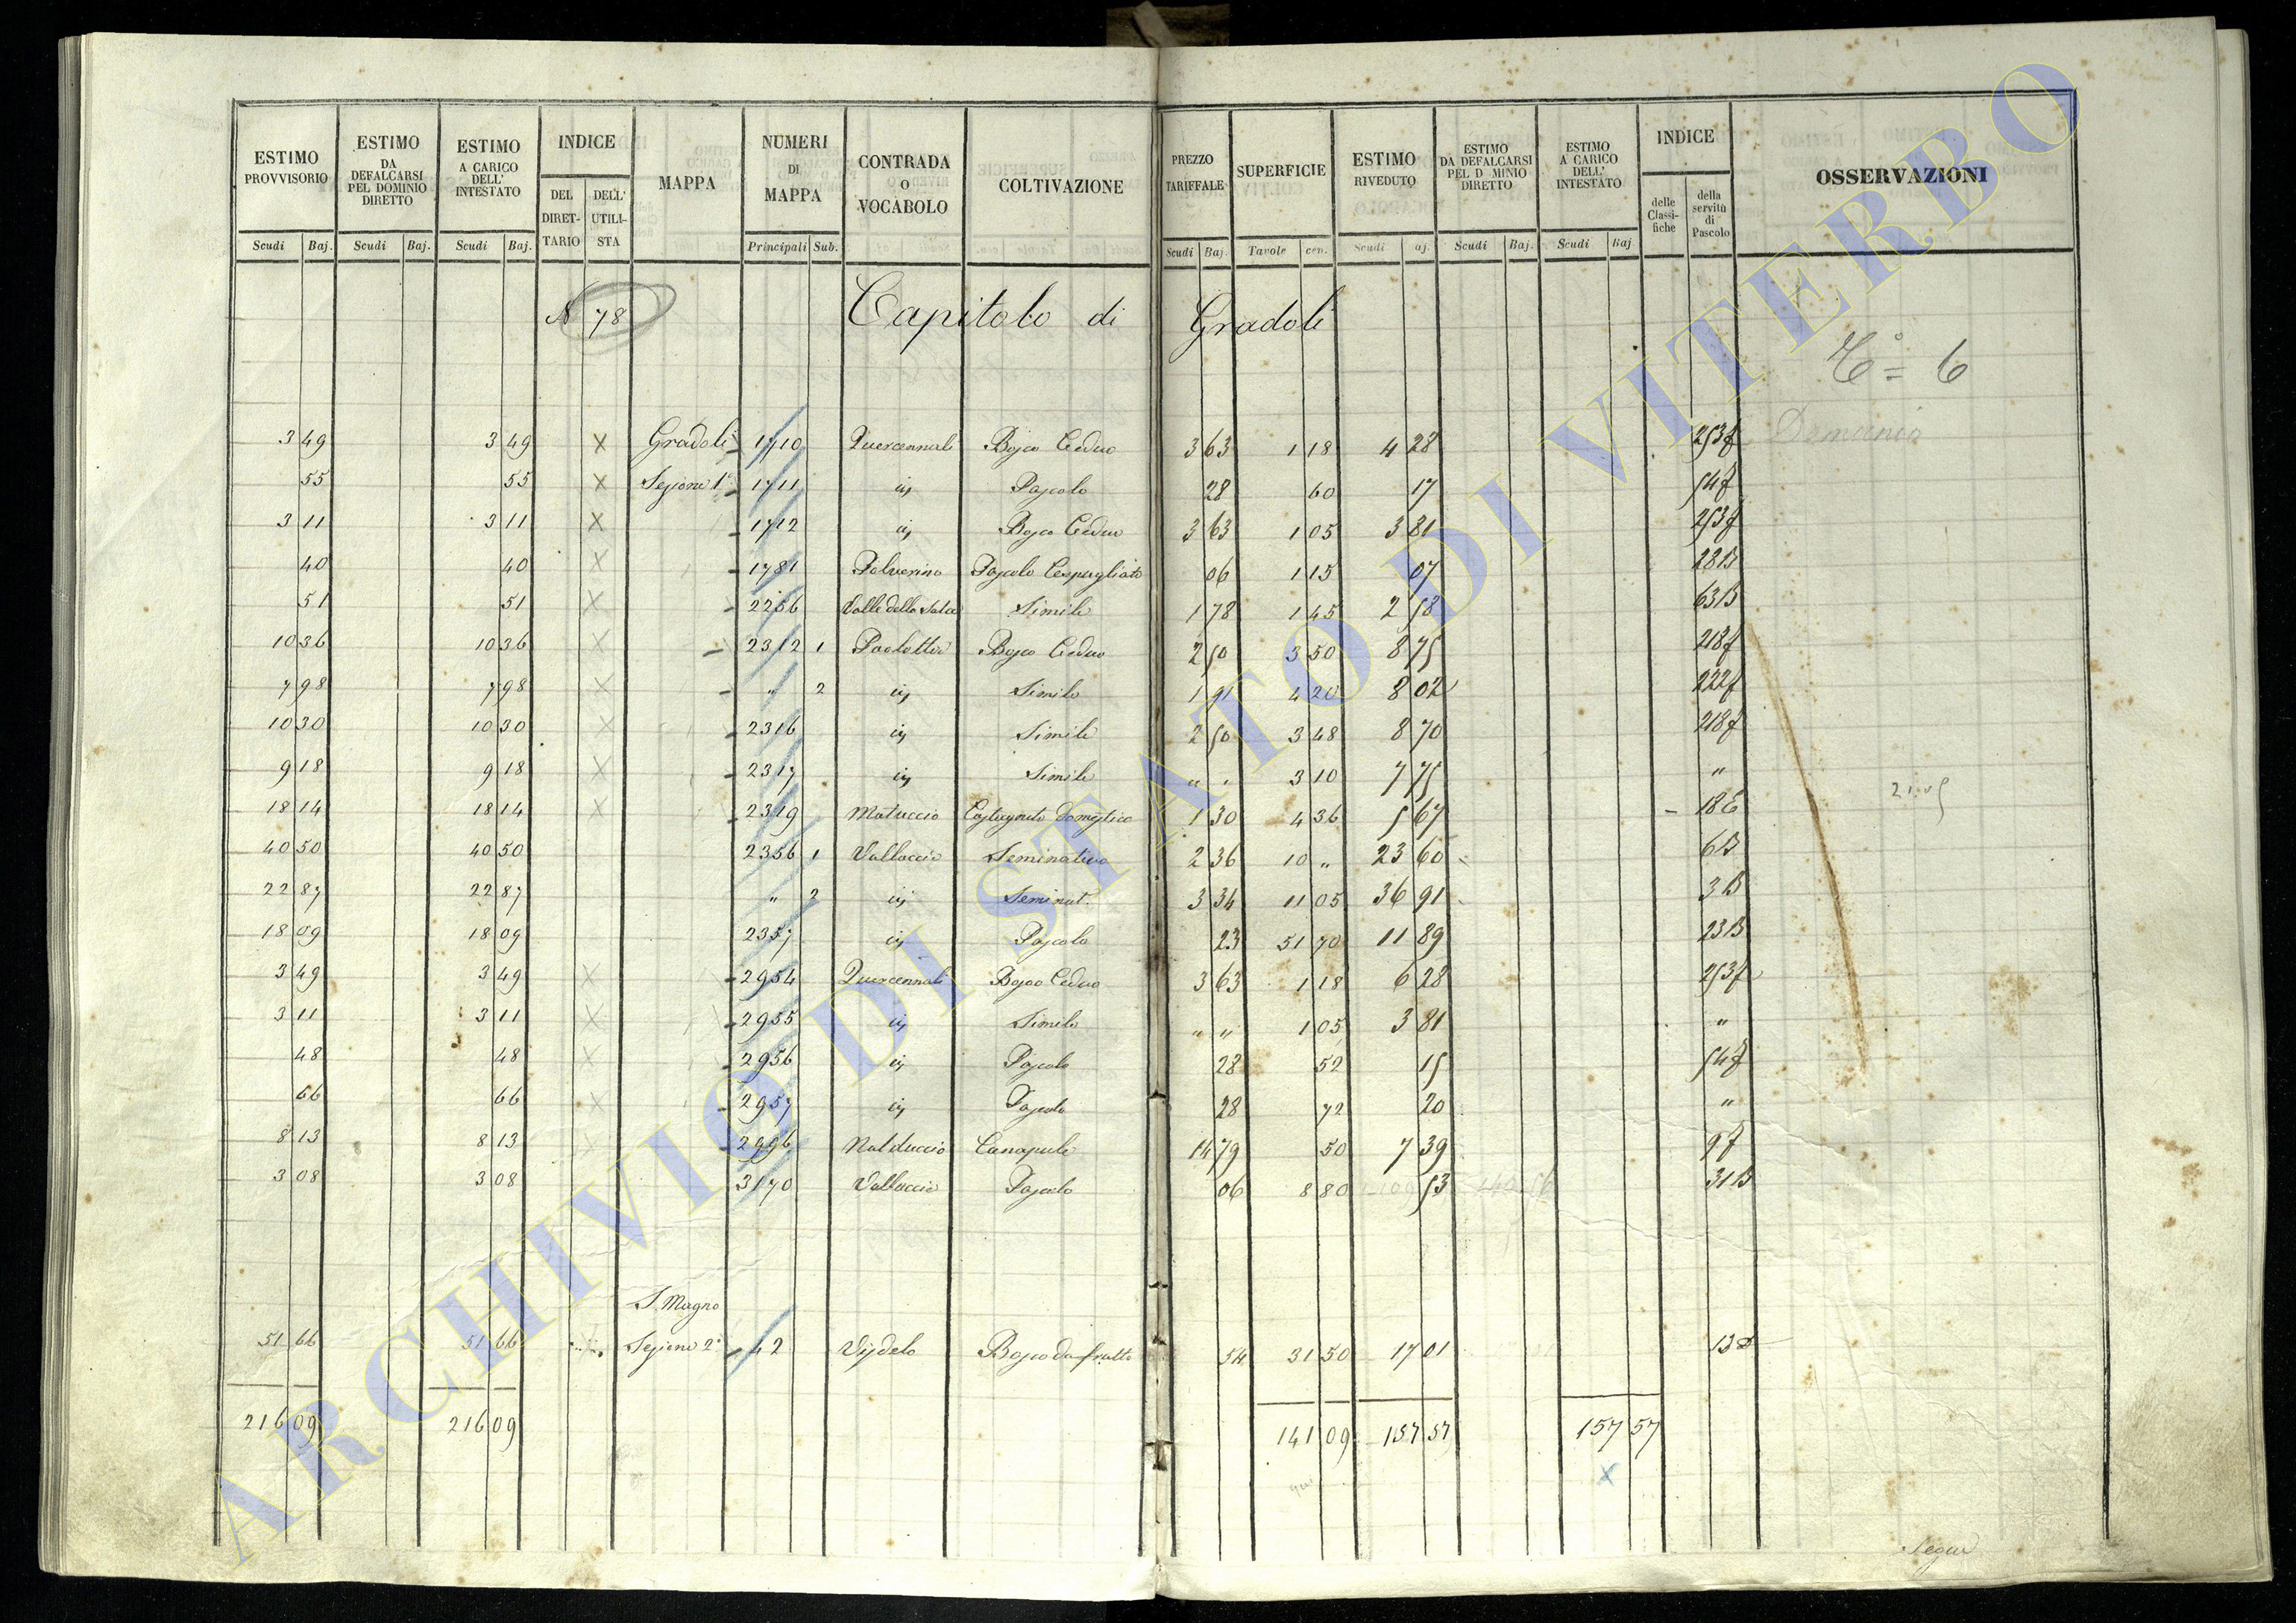 ESTIMO PROVVISORIO | ESTIMO DA DEFALCARSI PEL DOMINIO DIRETTO | ESTIMO A CARICO DELL' INTESTATO | INDICE | MAPPA | NUMERI DI MAPPA | CONTRADA O VOCABOLO | COLTIVAZIONE | PREZZO TARIFFALE | SUPERFICIE | ESTIMO RIVEDUTO | ESTIMO DA DEFALCARSI PEL D MINIO DIRETTO | ESTIMO A CARICO DELL' INTESTATO | INDICE | OSSERVAZIONI
DEL DIRETTARIO | DELL' UTILISTA | delle Classifiche | della servitù di Pascolo
Scudi Baj. | Scudi Baj. | Scudi Baj. | Principali Sub. | Scudi Baj. | Tavole cen. | Scudi aj. | Scudi Baj. | Scudi Baj
N 78 Capitolo di Gradoli
6
3 49 | 3 49 | X | Gradoli | 1710 | Quercennale | Bosco Ceduo | 3 63 | 1 18 | 4 28 | 253f
55 | 55 | X | Sezione 1ª | 1711 | iij | Pascolo | 28 | 60 | 17 | 54f
3 11 | 3 11 | X | 1712 | iij | Bosco Ceduo | 3 63 | 1 05 | 3 81 | 253f
40 | 40 | X | 1781 | Polverino | Pascolo Cespugliato | 06 | 1 15 | 07 | 28B
51 | 51 | X | 2256 | Valle della | Simile | 1 78 | 1 45 | 2 58 | 63B
10 36 | 10 36 | X | 2312 1 | Bosco Ceduo | 2 50 | 3 50 | 8 75 | 218f
7 98 | 7 98 | X | " 2 | iij | Simile | 1 91 | 4 20 | 8 02 | 222f
10 30 | 10 30 | X | 2316 | iij | Simile | 2 50 | 3 48 | 8 70 | 218f
9 18 | 9 18 | X | 2317 | iij | Simile | " " | 3 10 | 7 75 | "
18 14 | 18 14 | X | 2319 | Matuccio | Castagneto Domestico | 1 30 | 4 36 | 5 67 | 18E
40 50 | 40 50 | 2356 1 | Vallaccio | Seminativo | 2 36 | 10 " | 23 60 | 6B
22 87 | 22 87 | " 2 | iij | Seminat. | 3 34 | 11 05 | 36 91 | 3B
18 09 | 18 09 | 2357 | iij | Pascolo | 23 | 51 70 | 11 89 | 23B
3 49 | 3 49 | X | 2954 | Quercennale | Bosco Ceduo | 3 63 | 1 18 | 6 28 | 253f
3 11 | 3 11 | X | 2955 | iij | Simile | " " | 1 05 | 3 81 | "
48 | 48 | X | 2956 | iij | Pascolo | 28 | 52 | 15 | 54f
66 | 66 | X | 2957 | iij | Pascolo | 28 | 72 | 20 | "
8 13 | 8 13 | X | 2996 | Nalduccio | Canapule | 14 79 | 50 | 7 39 | 9f
3 08 | 3 08 | 3170 | Vallaccio | Pascolo | 06 | 8 80 | 53 | 31B
S. Magno
51 66 | 51 66 | Sezione 2ª | 42 | Bosco da frutto | 54 | 31 50 | 17 01 | 13
216 09 | 216 09 | 141 09 | 157 57 | 157 57
X
Segue
ARCHIVIO DI STATO DI VITERBO